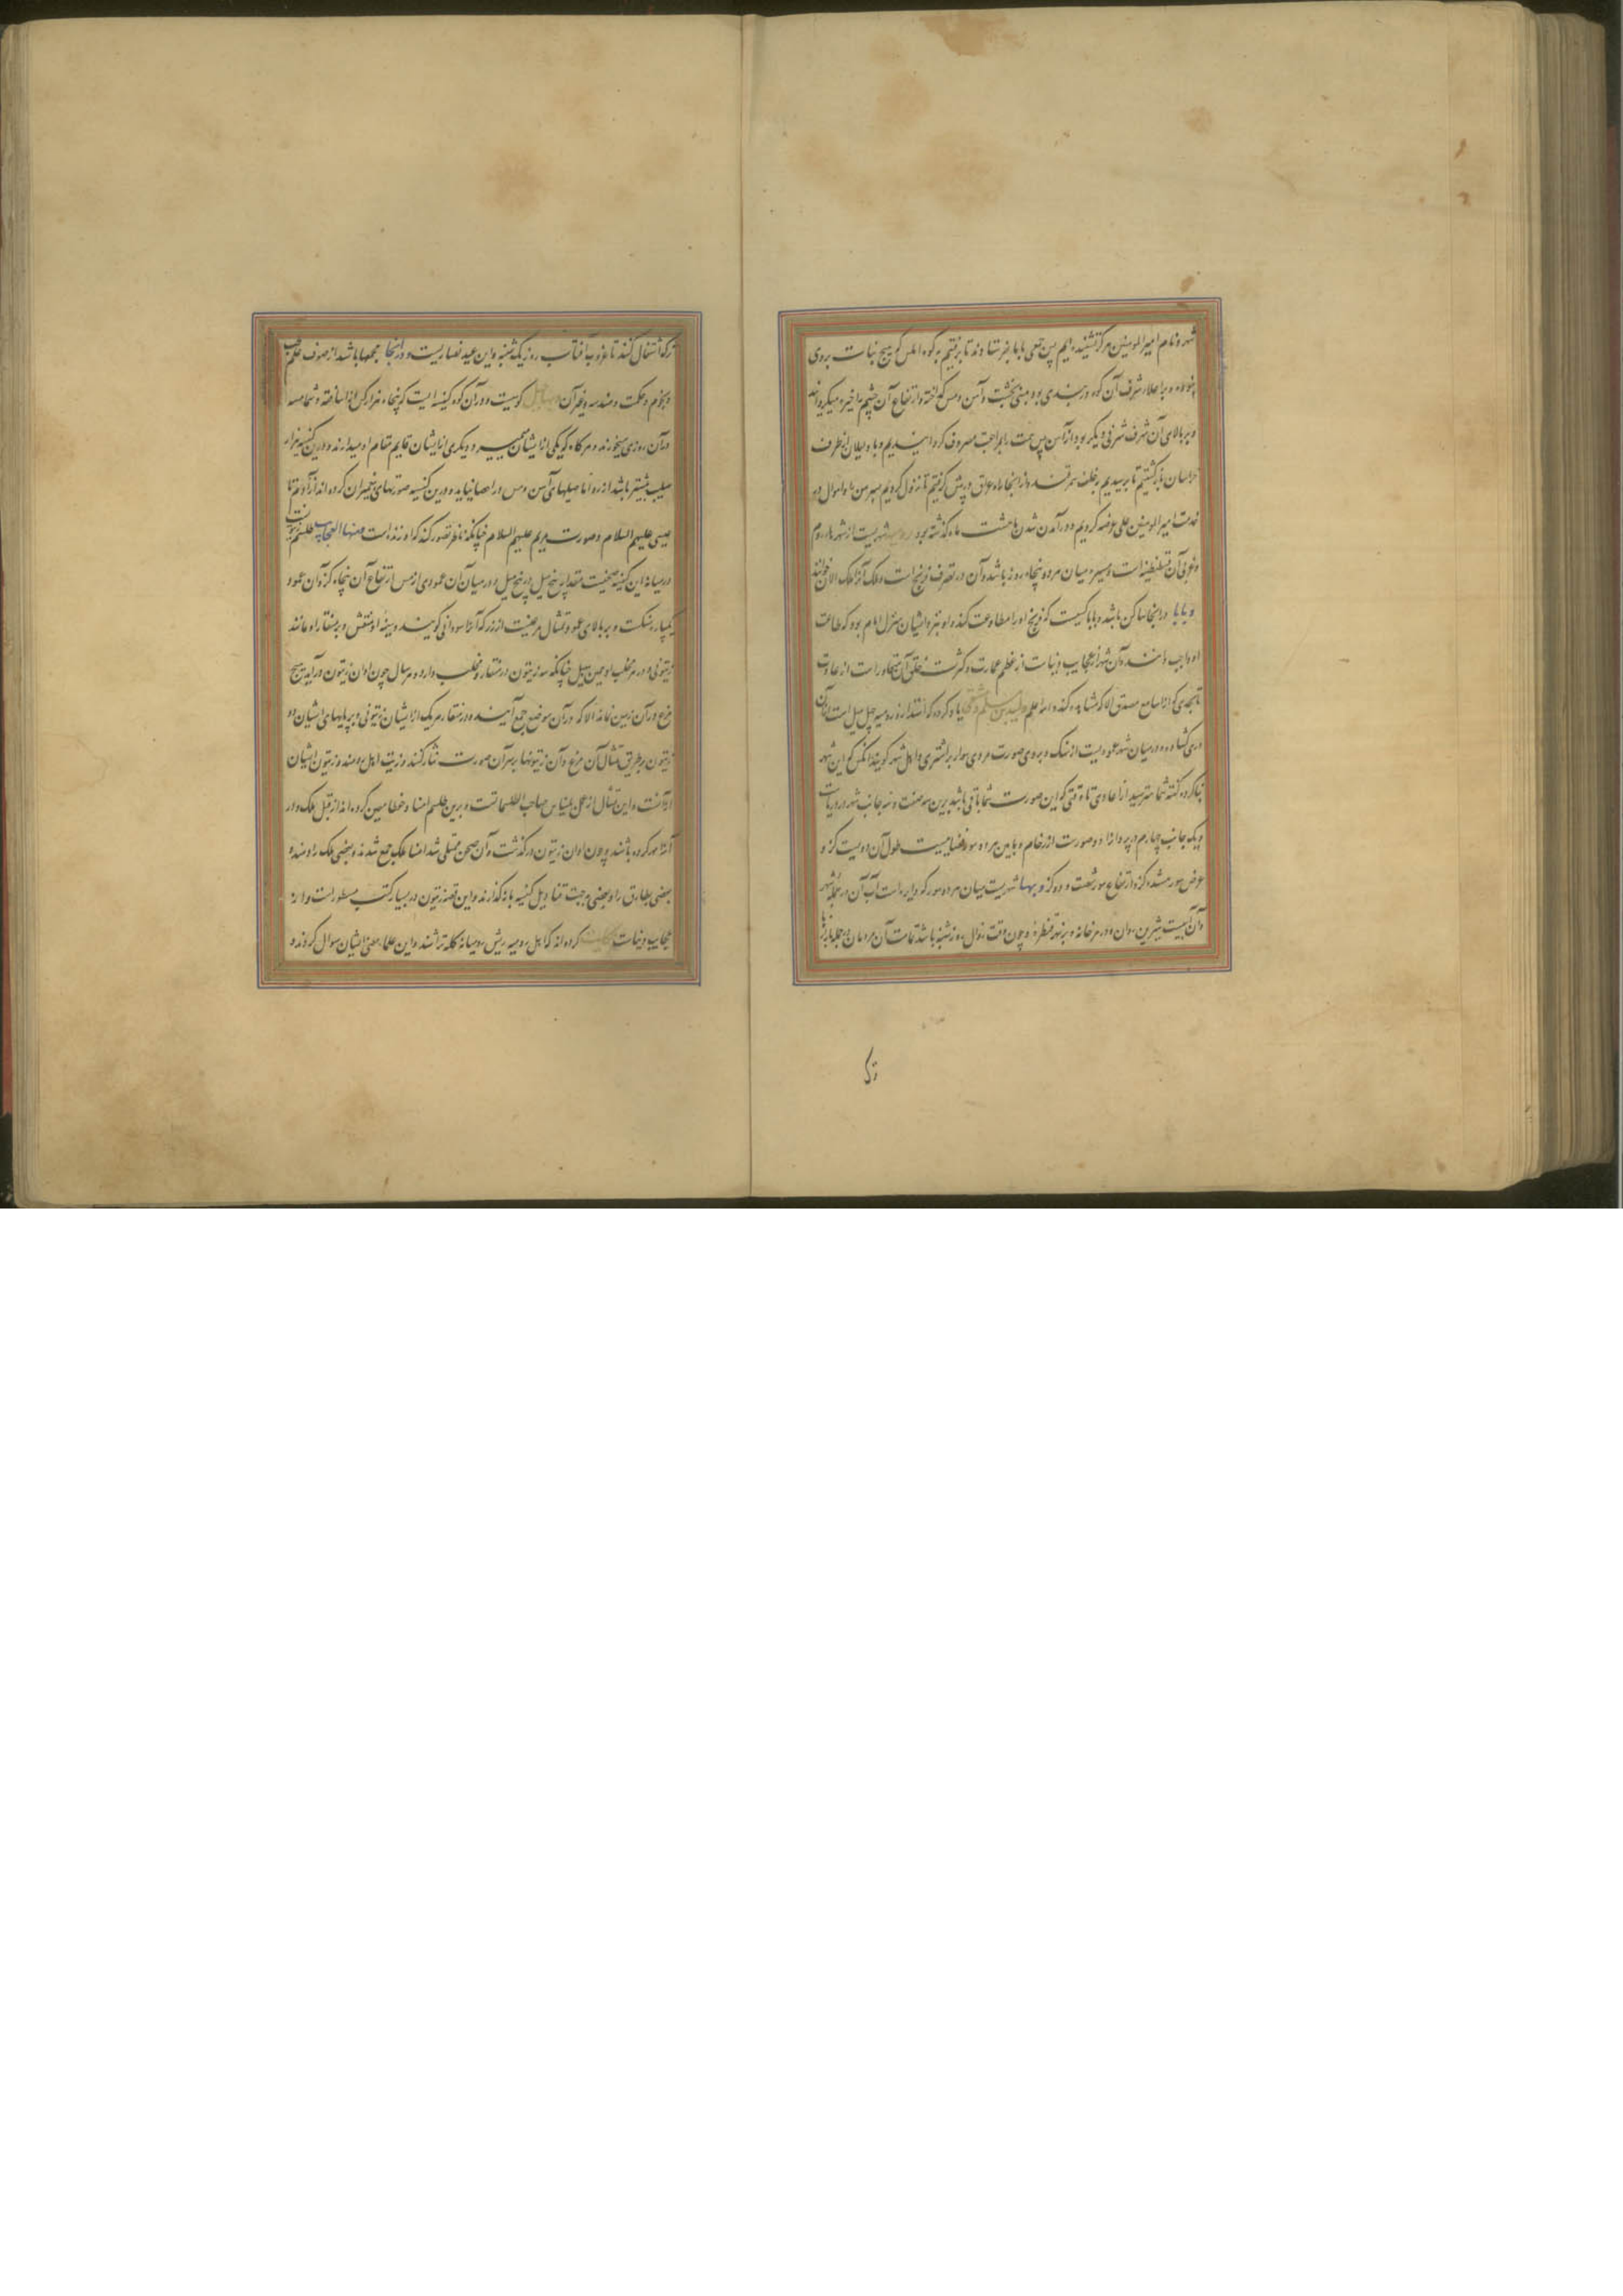 شهر و نام امیر المومنین هرگز نشنیده ایم پس جمعی با ما بفرستادند تا برفتیم به کوه املس که هیچ نبات بروی
نبود و بر اعلاء شرف آن کوه دربندی بود مبنی بخشت آهن و مس گداخته و ارتفاع آن چشم را خیره میگردانید
و بر بالای آن شرف شرفی دیگر بود از آهن پس عنان مراجعت مصروف گردانیدیم و با دلیلان از طرف
خراسان بازگشتیم تا برسیدیم بخلف سمرقند و از انجا راه عراق در پیش گرفتیم تا نزول کردیم بسر من رای و احوال در
خدمت امیر المومنین علی عرضه کردیم و در آمدن شدن ما هشت ماه گذشته بود رومیه شهریست از شهرهاء روم
و غربی آن قسطنطنیه است و مسیره میان هر دو پنجاه روز باشد و آن در تصرف فرنج است و ملک آنرا ملک الان خوانند
و پاپا در انجا ساکن باشد و پاپا کسیست که فرنج او را مطاوعت کنند و او نزد ایشان بمنزل امام بود که طاعت
او واجب دانند و آن شهر از عجایب دنیاست از عظم عمارت و کثرت خلق آن متجاوز است از عادت
تا بحدی که از سامع مصدق الا که مشاهده کند و الله اعلم ولید بن مسلم دمشقی یاد کرده که استداره رومیه چهل میل است و از آن
دری گشاده و در میان شهر عمودیست از سنگ و بروی صورت مردی سوار بر اشتری و اهل شهر گویند انکس که این شهر
بنا کرده گفته شما مترسید از اعادی تا وقتی که این صورت شما باقی باشد برین صفت و سه جانب شهر در دریاست
و یک جانب چهارم در بر و او را دو صورت از رخام و ما بین هر دو سور فضاییست طول آن دویست گز و
عرض سور هشده گز و ارتفاع سور شصت و دو گز و بها نهریست میان هر دو سور که دایره است آب آن در جمله شهر
و آن آبیست شیرین روان و در هر خانه و بر نهر قنطره و چون وقت زوال روز شنبه باشد تمامت آن مردمان در جمله بازارها
ترک
ترک اشتغال کنند تا غروب آفتاب روز یک شنبه و این عید نصاریست و در انجا مجمعها باشد از صنوف علم طب
و نجوم و حکمت و هندسه و غیر آن و بها جبل کوهیست و در آن کوه کنیسه ایست که پنجاه هزار کس از اساقفه و شمامسه
در آن روزی میخورند و هر گاه که یکی از ایشان بمیرد دیگری از ایشان قایم مقام او میدارند و درین کنیسه هزار
صلیب بیشتر باشد از زر و اما صلیبهای آهن و مس در احصا نیاید و درین کنیسه صورتهای پیغمبران کرده اند از آدم تا
عیسی علیهم السلام و صورت مریم علیهم السلام چنانکه ناظر تصور کند که او زنده است و منها العجایب طلسم زیتونست
در میانه این کنیسه صحنیست مقدار پنج میل در پنج میل و در میان آن عمودی از مس ارتفاع آن پنجاه گز و آن عمود
یکپاره نیست و بر بالای عمود تمثال مرغیست از زر که آنرا سودانی گویند و سینه او منقش و بر منقار او مانند
زیتونی و در هر مخلب او همین سبیل چنانکه سه زیتون در منقار و مخلب دارد و هر سال چون اوان زیتون در آید هیچ
مرغ در آن زمین نماند الا که در آن موضع جمع آیند و در منقار هر یک از ایشان زیتونی و بر پایهای ایشان دو
زیتون بر طریق تمثال آن مرغ و آن زیتونها بر سر آن صورت نثار کنند و زیت اهل رومیه و زیتون ایشان
از آنست و این تمثال از عمل بلیناس صاحب الطلسماتست و برین طلسم امنا و حفظا معین کرده اند از قبل ملک و در
آنرا مهر کرده باشند و چون اوان زیتون در گذشت و آن صحن ممتلی شد امنا ملک جمع شدند و بعضی ملک را دهند و
بعضی بطارق را و بعضی بجهت قنادیل کنیسه باز گذارند و این قصه زیتون در بسیار کتب مسطورست و از
عجایب دنیاست حکایت کرده اند که اهل رومیه ریش و میانه کله تراشند و این علما بعضی ایشان سوال کردند و